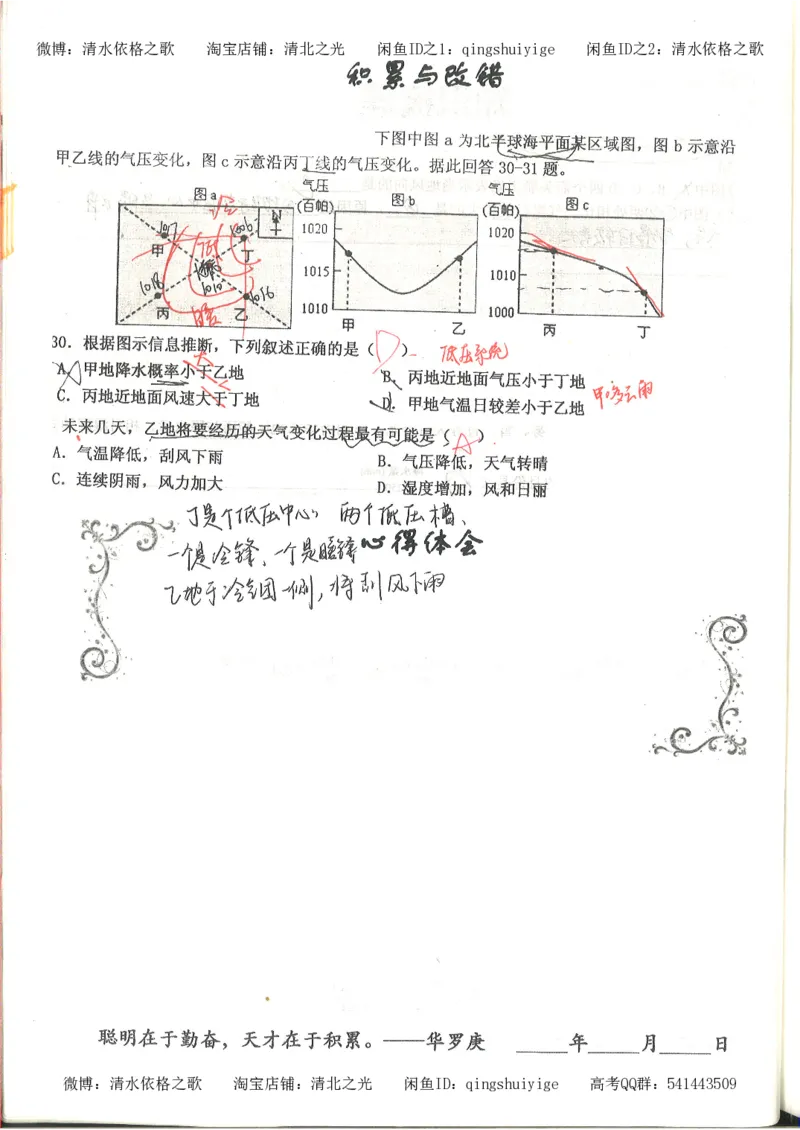 微博：清水依格之歌 淘宝店铺：清北之光 闲鱼ID之1：qingshuiyige 闲鱼ID之2：清水依格之歌
积累与改错
下图中图 a 为北半球海平面某区域图，图 b 示意沿
甲乙线的气压变化，图 c 示意沿丙丁线的气压变化。据此回答 30-31 题。
图a
1017
1006
N
甲
丁
1010
1018
1016
丙
乙
气压
(百帕)
图 b
1020
1015
1010
甲
乙
气压
(百帕)
图 c
1020
1010
1000
丙
丁
30. 根据图示信息推断，下列叙述正确的是（ D ）
低压系统
A. 甲地降水概率小于乙地
B. 丙地近地面气压小于丁地
C. 丙地近地面风速大于丁地
D. 甲地气温日较差小于乙地
甲多云雨
未来几天，乙地将要经历的天气变化过程最有可能是（ A ）
A. 气温降低，刮风下雨
B. 气压降低，天气转晴
C. 连续阴雨，风力加大
D. 湿度增加，风和日丽
丁是个低压中心，两个低压槽、
一个是冷锋、一个是暖锋
心得体会
乙地于冷气团一侧，将刮风下雨
聪明在于勤奋，天才在于积累。——华罗庚 _____年_____月_____日
微博：清水依格之歌 淘宝店铺：清北之光 闲鱼ID：qingshuiyige 高考QQ群：541443509